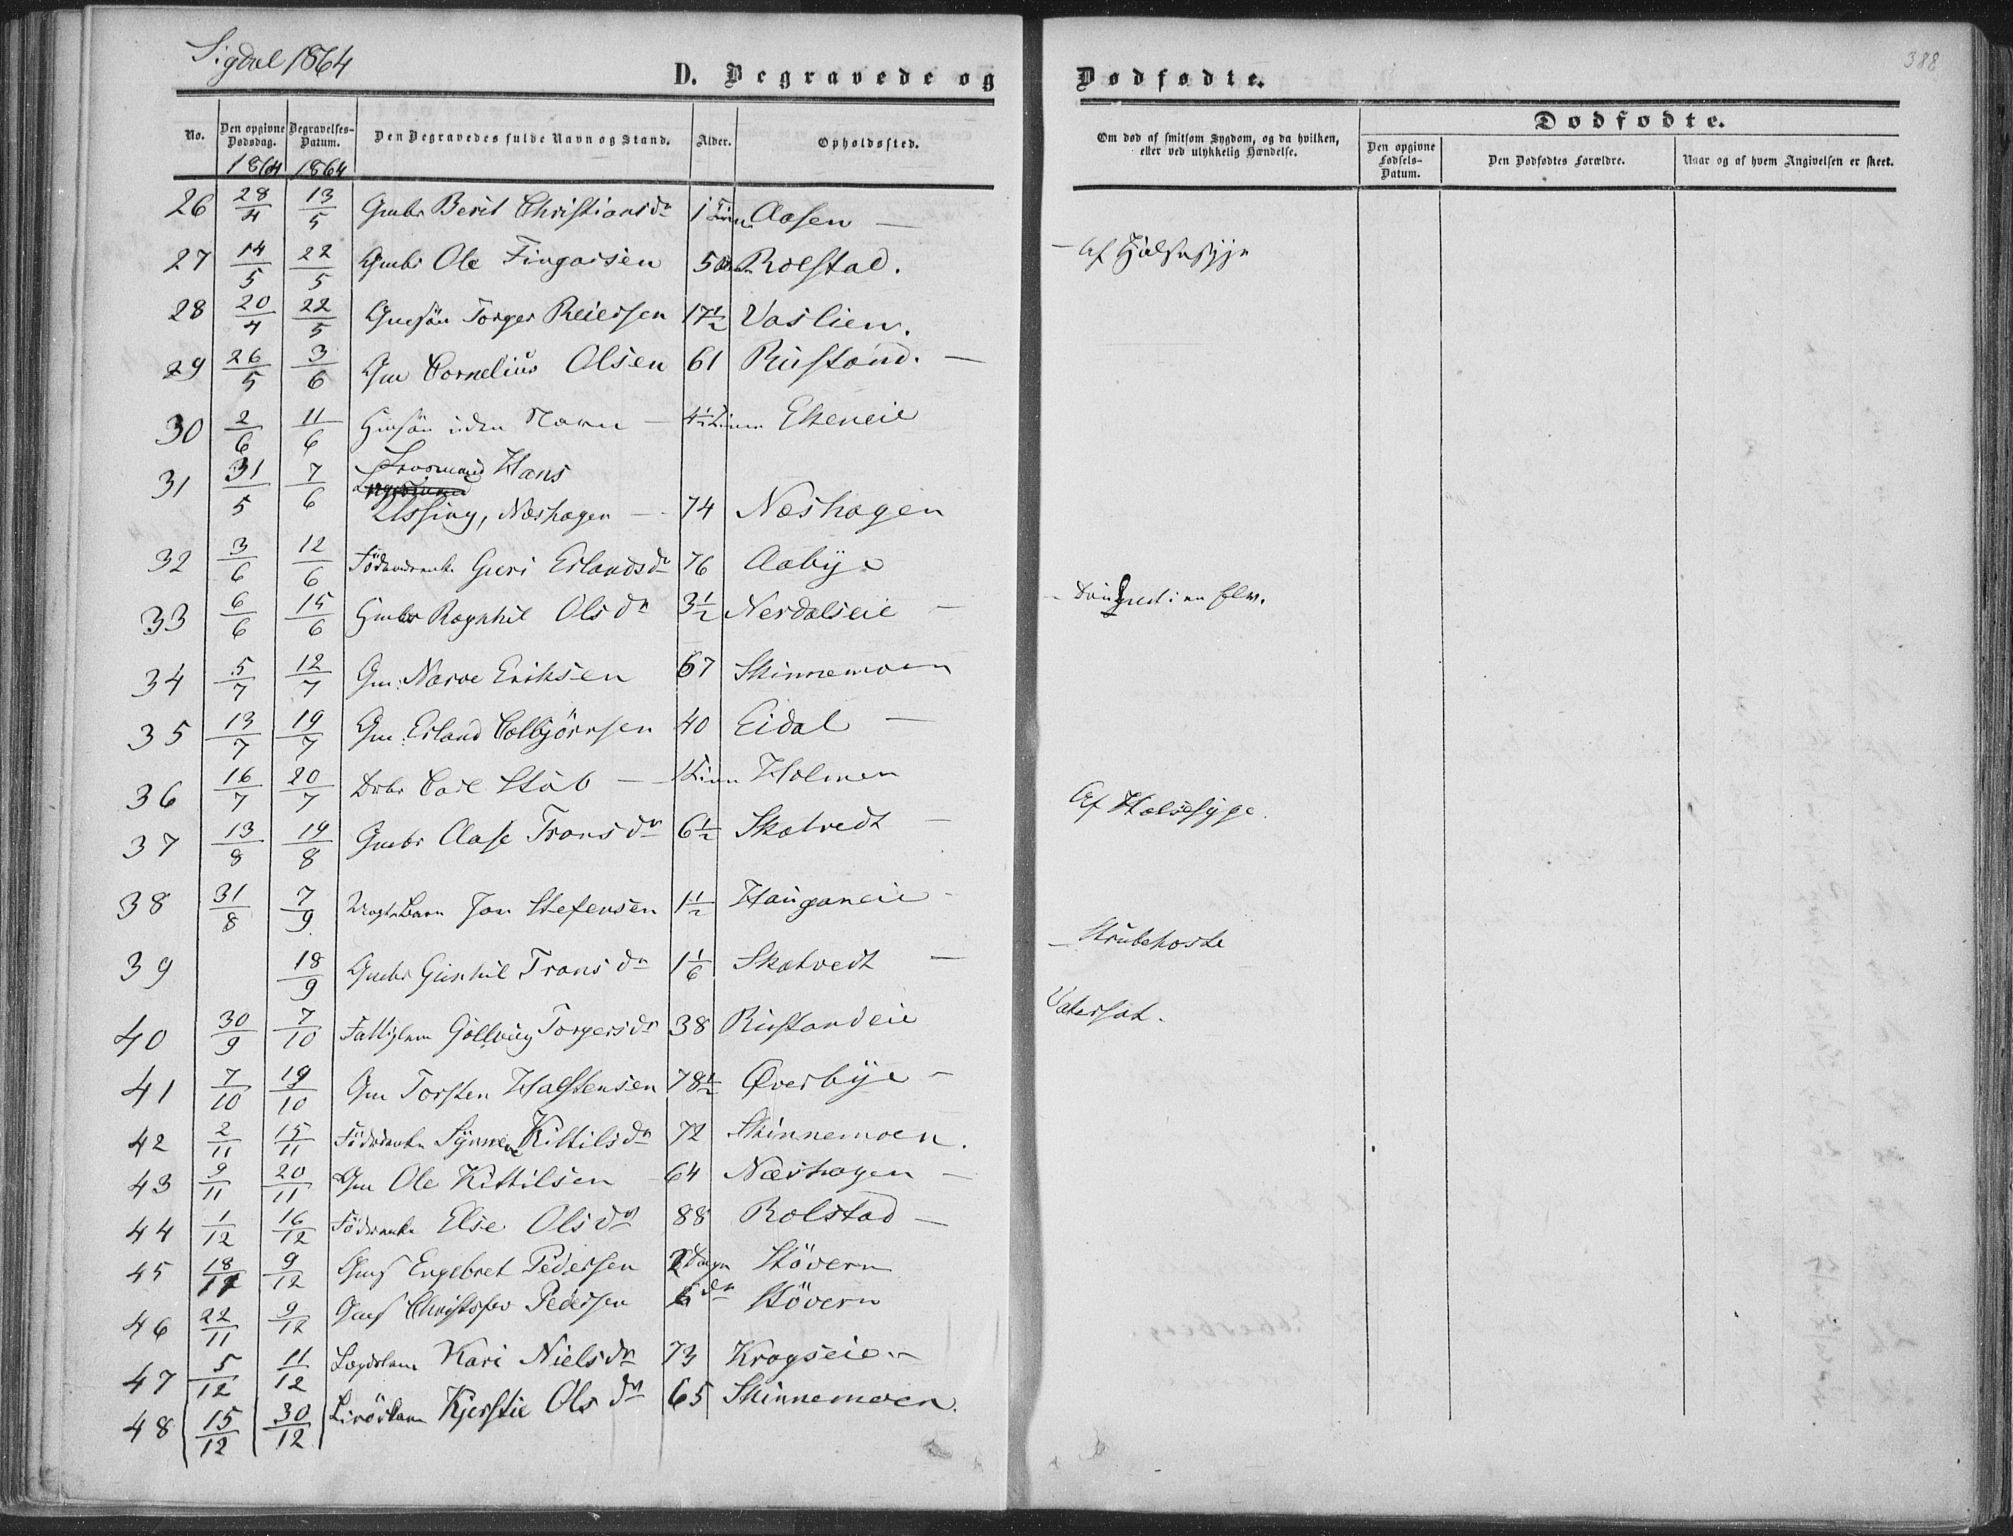 Sigdal 1864
388
D. Begravede og Dødfødte.
No. Den opgivne Dødsdag. Begravelses-Datum. Den Begravedes fulde Navn og Stand. Alder. Opholdssted. Om død af smitsom Sygdom, og da hvilken, eller ved ulykkelig Hændelse. Dødfødte.
Den opgivne Fødsels-Datum. Den Dødfødtes Forældre. Naar og af hvem Angivelsen er skeet.
1864 1864
26 28/4 13/5 Gmbr Berit Christiansdr 1 Aasen —
27 14/5 22/5 Gmbr Ole Fingarsen 5 Rolstad. — Af Halssyge
28 20/4 22/5 Gmsön Torger Reiersen 17½ Vaslien.
29 26/5 3/6 Gm Cornelius Olsen 61 Rustand. —
30 2/6 11/6 Hmsön uden Navn — 4½ Timer Ekeneie
31 31/5 7/6 Hans
Ussing, Næshagen — 74 Næshagen
32 3/6 12/6 Guri Erlandsdr 76 Aabye
33 6/6 15/6 Hmbr Ragnhil Olsdr 3½ Nerdalseie — — Druknet i en Elv.
34 5/7 12/7 Gm. Narve Eriksen 67 Skinnemoen
35 13/7 19/7 Gm. Erland Colbjörnsen 40 Eidal —
36 16/7 20/7 Carl Stub — 1 Time Holmen
37 13/8 19/8 Gmbr Aase Transdr 6½ Skatvedt — Af Halssyge.
38 31/8 7/9 Jon Stefensen 1½ Hauganeie —
39 18/9 Gmbr Gunhil Transdr 1 1/6 Skatvedt — — Strubehoste
40 30/9 7/10 Fattiglem Gollaug Torgersdr 38 Rustandeie Vatersot.
41 7/10 19/10 Gm Torsten Halstensen 78½ Øverbye —
42 2/11 15/11 Synneve Kittilsdr 72 Skinnemoen.
43 9/11 20/11 Gm Ole Kittilsen 64 Næshagen —
44 1/12 16/12 Else Olsdr 88 Rolstad —
45 18/11 9/12 Gms Engebret Pedersen 2 Dage Stövern
46 22/11 9/12 Gms Christofer Pedersen 6 do Stövern
47 5/12 11/12 Lægdslem Kari Nielsdr 73 Kragseie —
48 15/12 30/12 Kjerstie Olsdr 65 Skinnemoen.